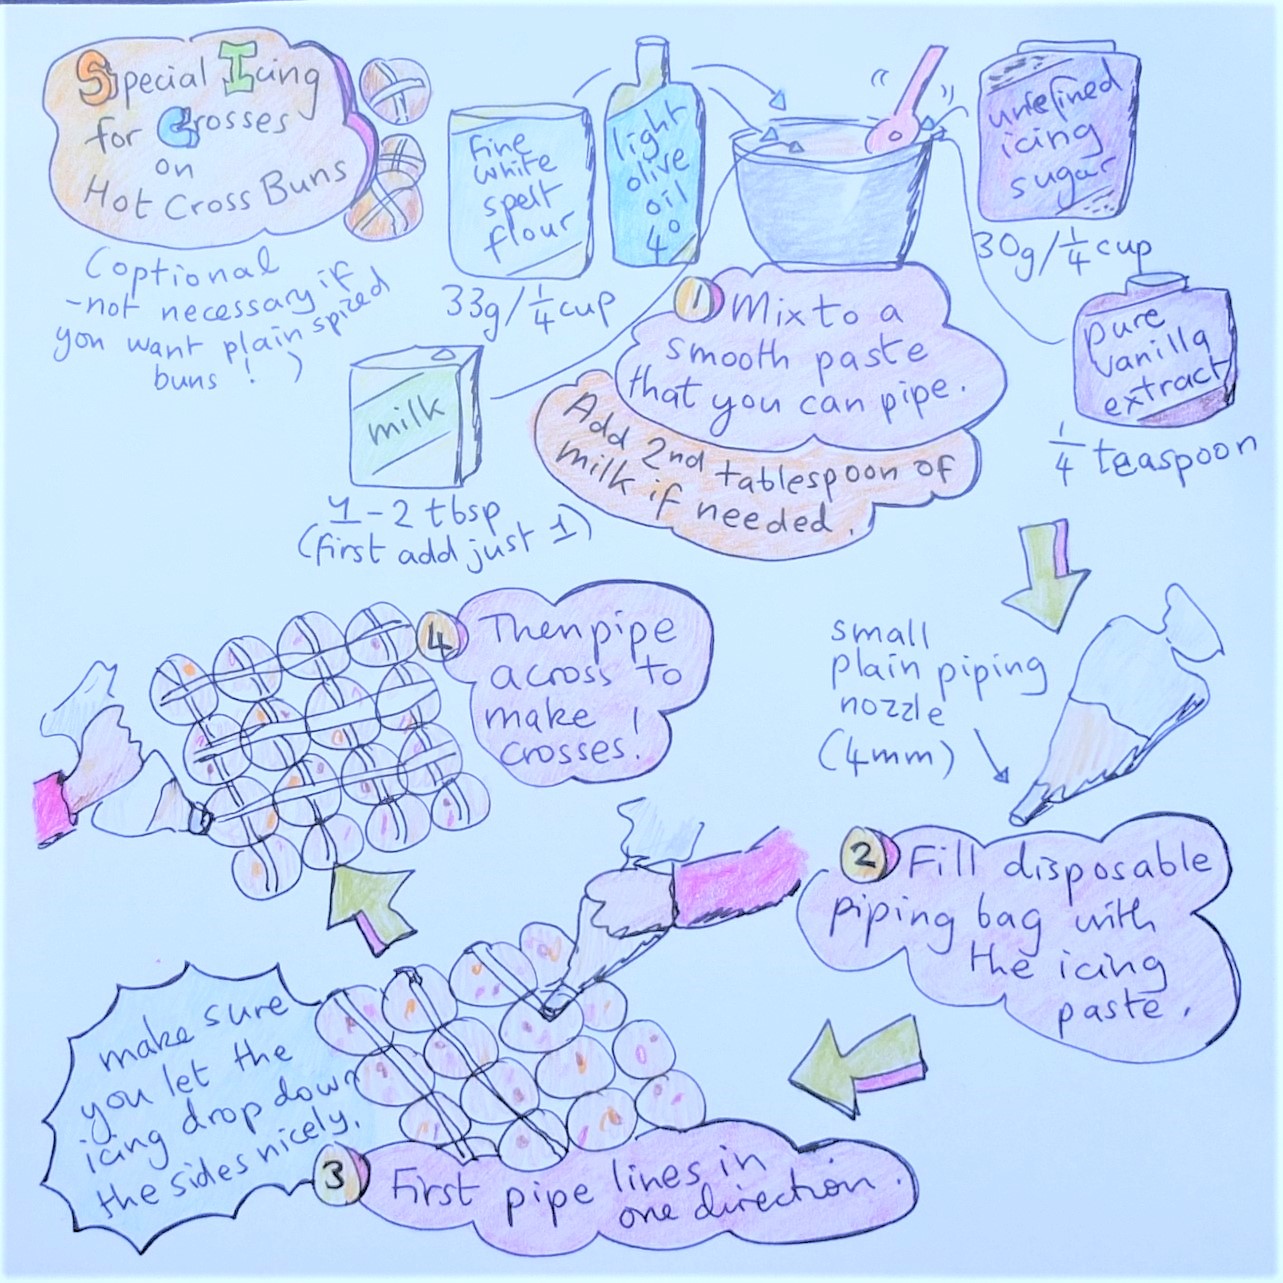 Special Icing
for Crosses
on
Hot Cross Buns
(optional
-not necessary if
you want plain spized
buns! )
fine
white
spelt
flour
33g/¼cup
light
olive
oil
4°
unrefined
icing
sugar
30g/¼cup
pure
vanilla
extract
¼ teaspoon
milk
1-2 tbsp
(first add just 1)
1 Mix to a
smooth paste
that you can pipe.
Add 2nd tablespoon of
milk if needed.
small
plain piping
nozzle
(4mm)
2 Fill disposable
piping bag with
the icing
paste.
3 First pipe lines in
one direction.
make sure
you let the
icing drop down
the sides nicely.
4 Then pipe
across to
make
crosses!